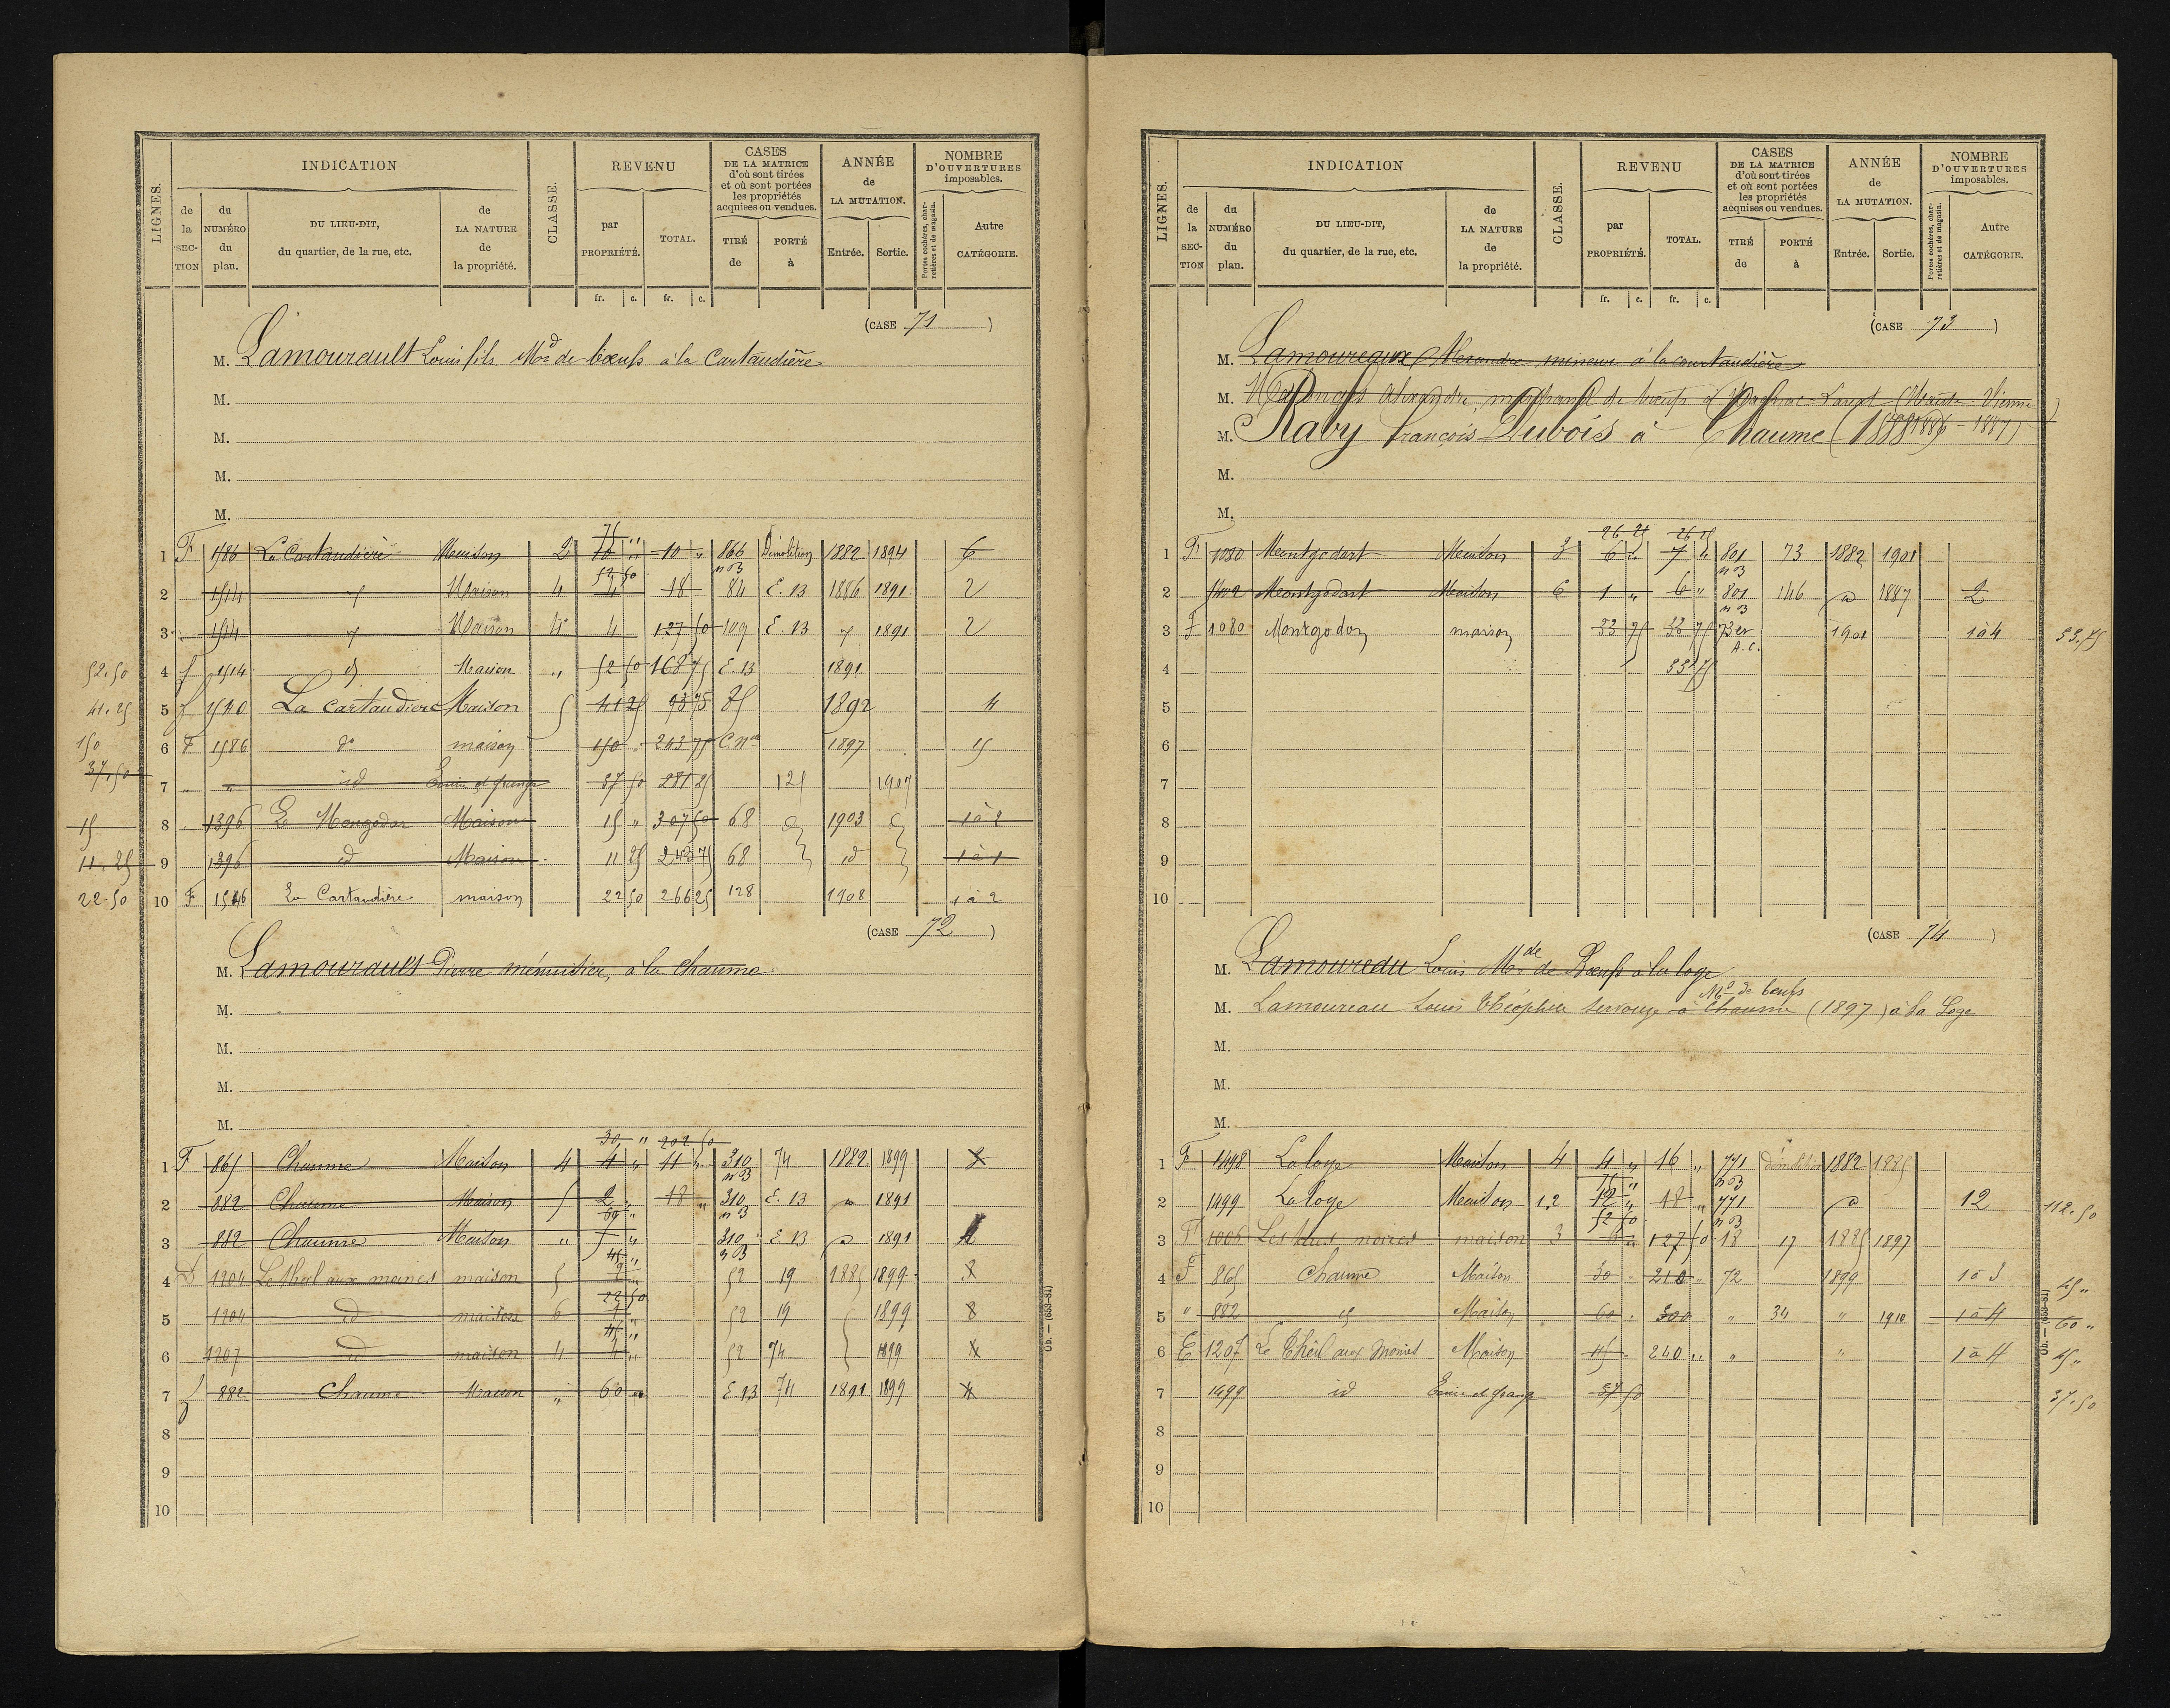 LIGNES.
INDICATION
CLASSE.
REVENU
CASES
DE LA MATRICE
d'où sont tirées
et où sont portées
les propriétés
acquises ou vendues.
ANNÉE
de
LA MUTATION.
NOMBRE
D'OUVERTURES
imposables.
de la SECTION
du NUMÉRO du plan.
DU LIEU-DIT,
du quartier, de la rue, etc.
de LA NATURE de la propriété.
par PROPRIÉTÉ.
TOTAL.
TIRÉ de
PORTÉ à
Entrée.
Sortie.
Portes cochères, charretières et de magasin.
Autre CATÉGORIE.
fr. c. fr. c.
(CASE 71)
M. Lamourault Louis fils Md de bœufs à la Cartaudière
M.
M.
M.
M.
75 "
1 F 1586 La Cartaudière Maison 2 10 " 10 " 866 Démolition 1882 1894 6
52 50 n B
2 1514 Maison 4 4 18 84 E. 13 1886 1891 2
3 1514 Maison 4 4 127 50 109 E. 13 1891 2
52.50 4 f 1514 d Maison " 52 50 168 75 E. 13 1891
41.25 5 f 1520 La Cartaudière Maison 5 41 25 93 75 35 1892 4
150 6 F 1586 do maison 150 243 75 C. Nlle 1897 15
37,50 7 " " id Ecurie et grange 37 50 281 25 125 1907
15 8 " 1396 Le Mongodar Maison 15 " 307 50 68 1903 1 à 2
11.25 9 1396 id Maison 11 25 243 75 68 id 1 à 1
22.50 10 F 1546 La Cartaudière maison 22 50 266 25 128 1908 1 à 2
(CASE 72)
M. Lamourault Pierre ménuisier, à la chaume
M.
M.
M.
M.
30 " 202 50
1 F 865 Chaume Maison 4 4 " 11 " 310 74 1882 1899
n B
2 882 Chaume Maison 5 2 " 18 " 310 E. 13 1891
60 " n B
3 882 Chaume Maison " 5 " 310 E 13 1891
45 " n B
4 1204 Le theil aux moines maison 5 52 19 1885 1899 8
22 50
5 1204 id maison 6 52 19 1899 8
45 "
6 1207 id maison 4 4 " 52 74 1899 4
7 f 882 Chaume Maison " 60 " E. 13 74 1891 1899 4
8
9
10
S. 6. — (638-81)
LIGNES.
INDICATION
CLASSE.
REVENU
CASES
DE LA MATRICE
d'où sont tirées
et où sont portées
les propriétés
acquises ou vendues.
ANNÉE
de
LA MUTATION.
NOMBRE
D'OUVERTURES
imposables.
de la SECTION
du NUMÉRO du plan.
DU LIEU-DIT,
du quartier, de la rue, etc.
de LA NATURE de la propriété.
par PROPRIÉTÉ.
TOTAL.
TIRÉ de
PORTÉ à
Entrée.
Sortie.
Portes cochères, charretières et de magasin.
Autre CATÉGORIE.
fr. c. fr. c.
(CASE 73)
M. Lamoureaux Alexandre à la courtaudière
M. Alexandre, marchand de bœufs à Laval (Haute-Vienne)
M. Raby François Dubois à Chaume (1888)
M.
M.
26 25 26 25
1 F 1080 Montgodart Maison 3 6 " 7 " 801 73 1882 1901
n B
2 1402 Montgodart Maison 6 1 " 6 " 801 146 1887 2
n B
3 F 1080 Montgodon maison 33 75 33 75 73 1901 1 à 4 33,75
A. C.
4 33 75
5
6
7
8
9
10
(CASE 74)
M. Lamoureau Louis Md de Bœufs à la loge
Md de bœufs
M. Lamoureau Louis Théophile à Chaume (1897) à la Loge
M.
M.
M.
1 F 1498 La loge Maison 4 4 " 16 " 771 démolition 1882 1885
75 " n B
2 1499 La loge Maison 1.2 12 " 18 " 771 12 112.50
52 50 n B
3 F 1006 Les noires maison 3 6 " 127 50 18 17 1885 1897
4 F 865 Chaume Maison 30 210 72 1899 1 à 3 45 "
5 " 882 id Maison 60 300 " 34 " 1910 1 à 4 60 "
6 E 1207 Le Theil aux Moines Maison 45 240 " " " 1 à 4 45 "
7 1499 id Ecurie et grange 37 50 37.50
8
9
10
S. 6. — (638-81)